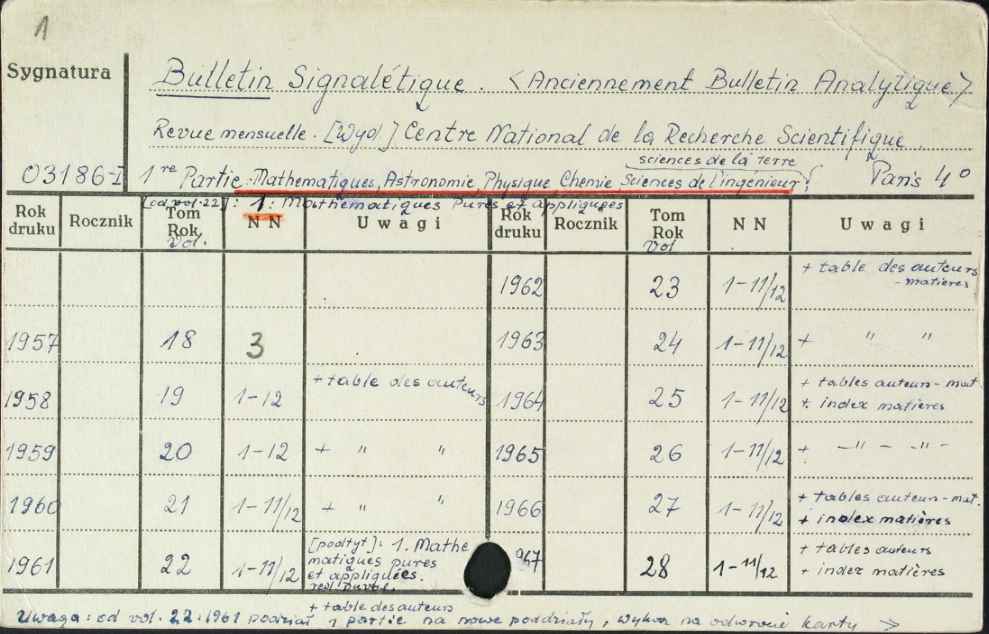 1
Sygnatura
Bulletin Signalétique. <Anciennement Bulletin Analytique>
Revue mensuelle. [Wyd] Centre National de la Recherche Scientifique.
sciences de la terre
03186-I 1re Partie: Mathematiques, Astronomie, Physique Chemie Sciences de l'ingénieur; Paris 4°
[od vol. 22]: 1: Mathématiques Pures et appliquées
Rok druku Rocznik Tom Rok Vol. NN Uwagi Rok druku Rocznik Tom Rok Vol NN Uwagi
1962 23 1-11/12 + table des auteurs - matieres
1957 18 3 1963 24 1-11/12 + " "
1958 19 1-12 + table des auteurs 1964 25 1-11/12 + tables auteurs-mat. + index matières
1959 20 1-12 + " " 1965 26 1-11/12 + -"- -"-
1960 21 1-11/12 + " " 1966 27 1-11/12 + tables auteurs-mat. + index matières
1961 22 1-11/12 [podtyt]: 1. Mathematiques pures et appliquées. + table des auteurs 967 28 1-11/12 + tables auteurs + index matières
Uwaga: od vol. 22.1961 podział 1 partie na nowe poddziały, wykaz na odwrocie karty →